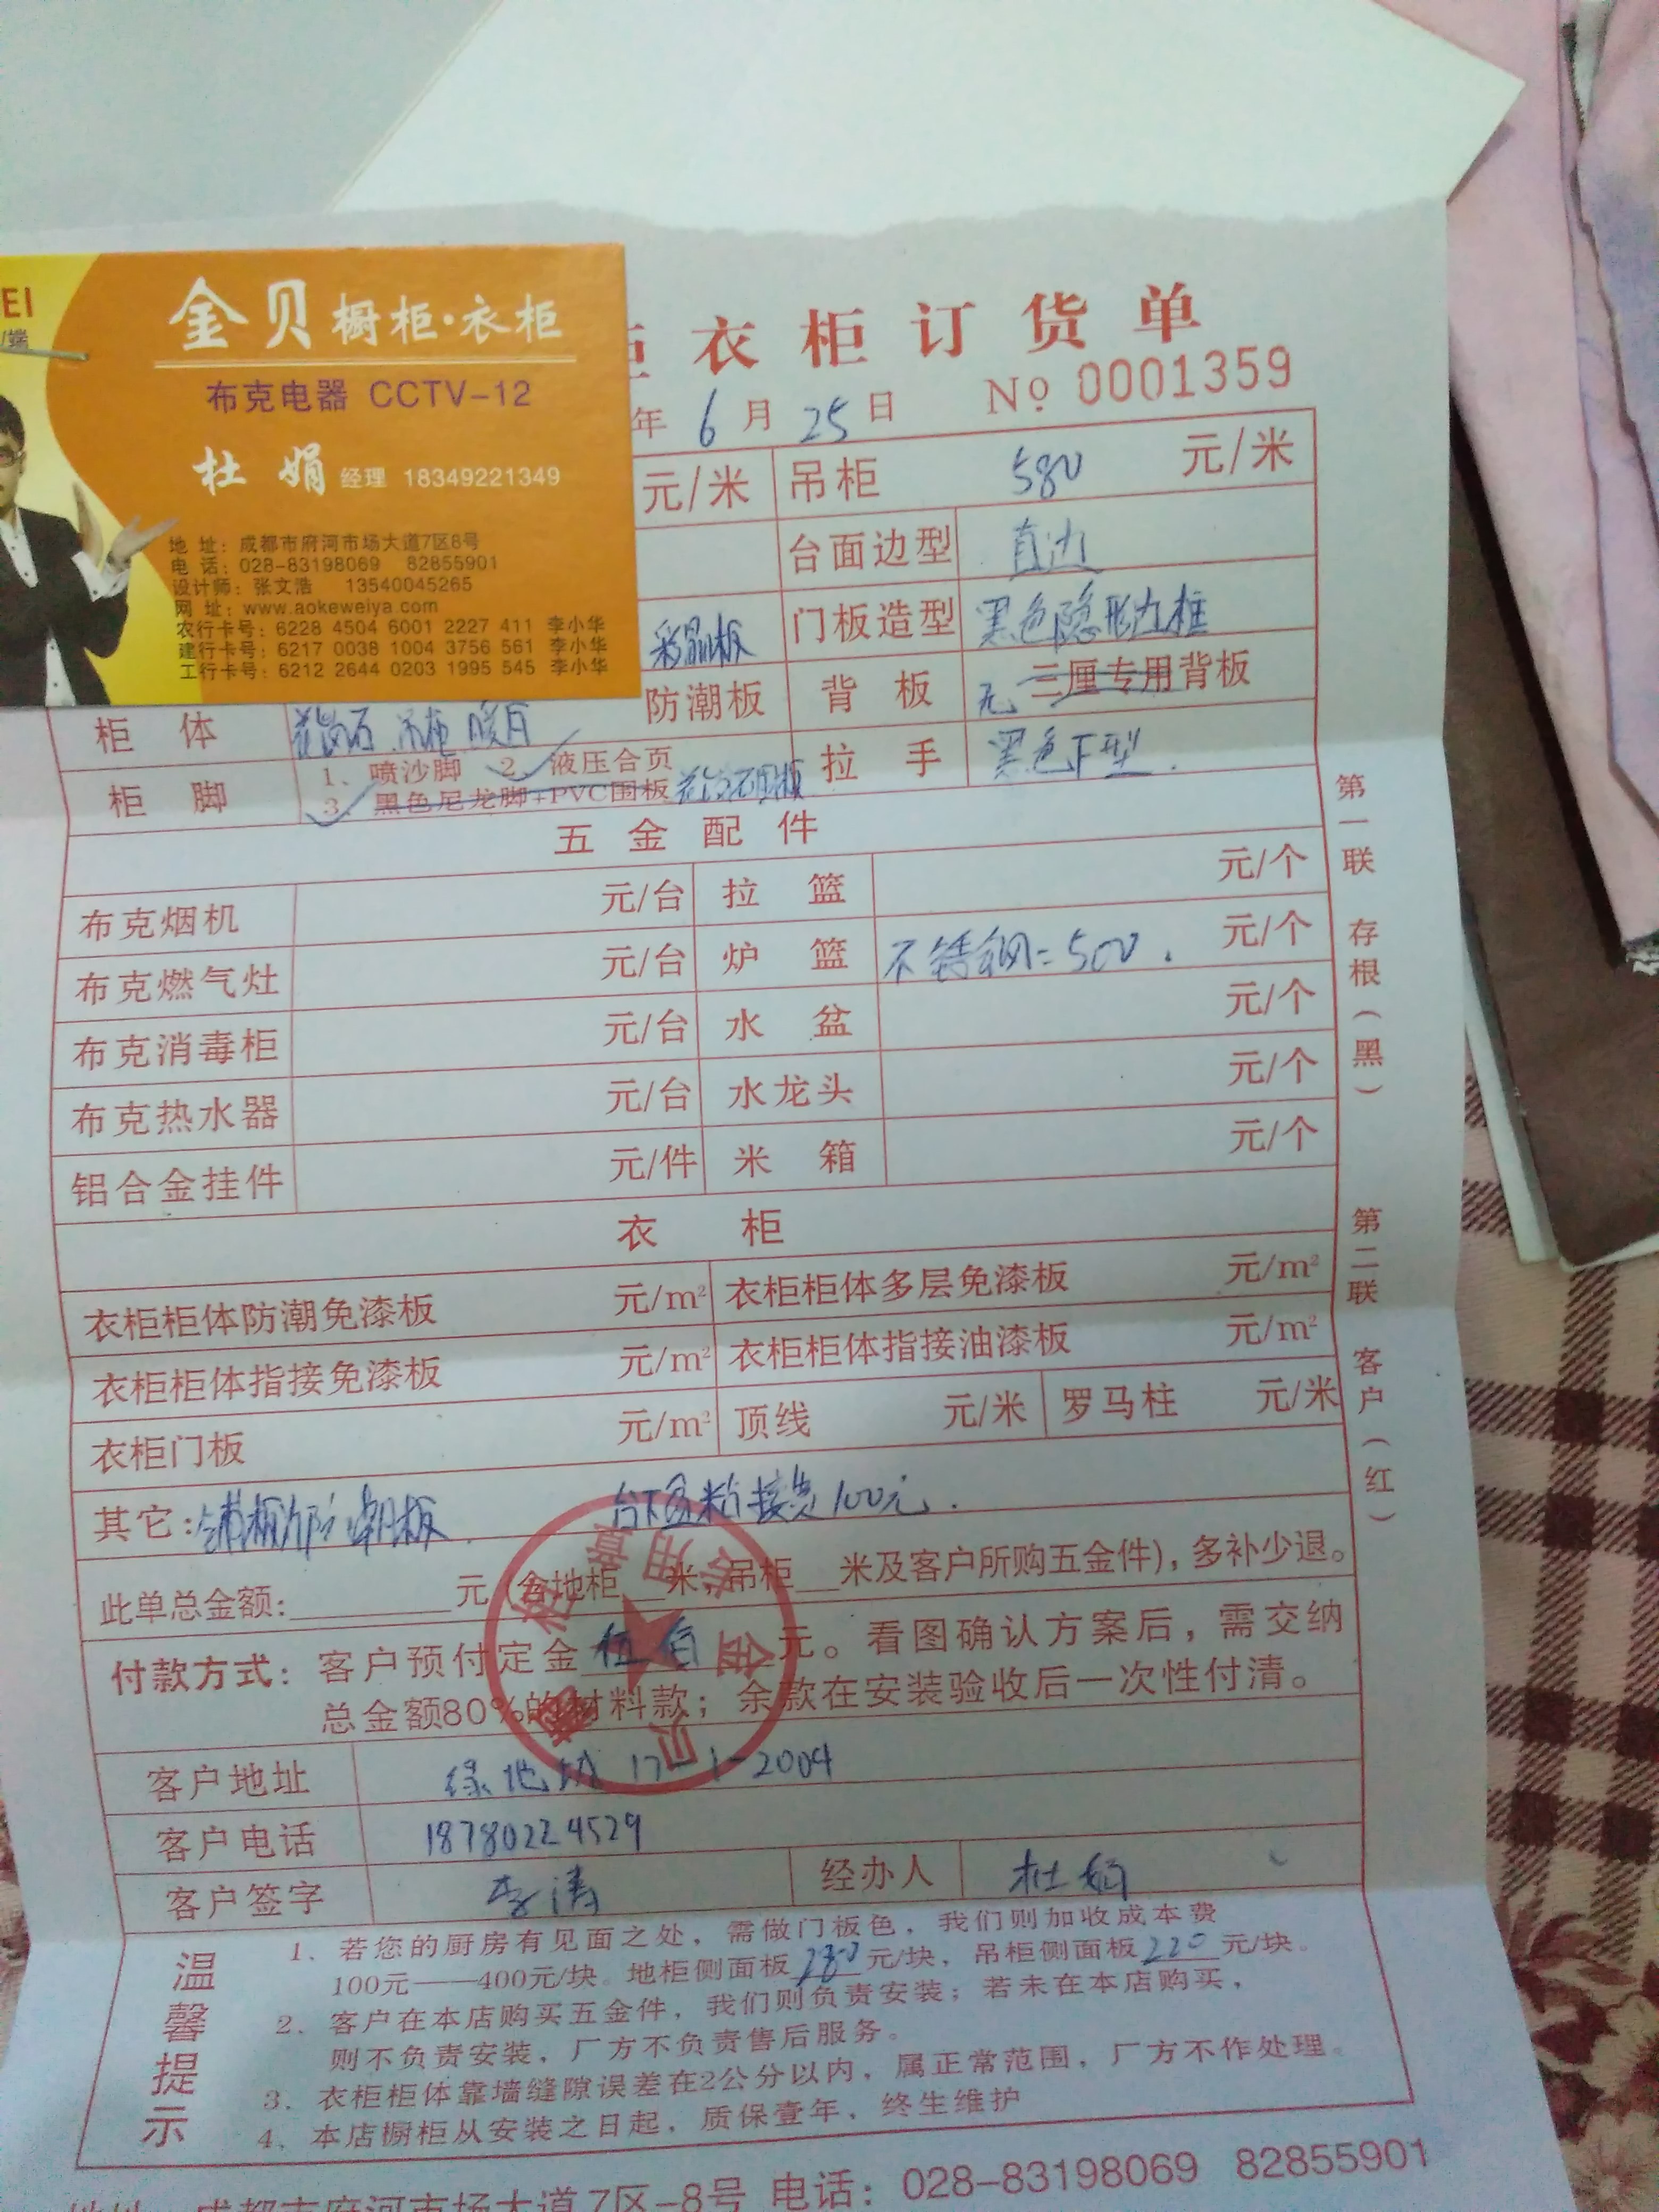 EI
端
金贝橱柜·衣柜
布克电器 CCTV-12
杜娟 经理 18349221349
地 址：成都市府河市场大道7区8号
电 话：028-83198069 82855901
设计师：张文浩 13540045265
网 址：www.aokeweiya.com
农行卡号：6228 4504 6001 2227 411 李小华
建行卡号：6217 0038 1004 3756 561 李小华
工行卡号：6212 2644 0203 1995 545 李小华
衣柜订货单
年 6 月 25 日 № 0001359
元/米 吊柜 580 元/米
台面边型 直边
彩晶板 门板造型 黑色隐形边框
柜体 花岗石 吊柜 暖月 防潮板 背板 无 三厘专用背板
柜脚 1、喷沙脚 2、液压合页 拉手 黑色下型.
3、黑色尼龙脚+PVC围板 花岗石围板
五金配件
布克烟机 元/台 拉篮 元/个
布克燃气灶 元/台 炉篮 不锈钢=500. 元/个
布克消毒柜 元/台 水盆 元/个
布克热水器 元/台 水龙头 元/个
铝合金挂件 元/件 米箱 元/个
衣柜
衣柜柜体防潮免漆板 元/m² 衣柜柜体多层免漆板 元/m²
衣柜柜体指接免漆板 元/m² 衣柜柜体指接油漆板 元/m²
衣柜门板 元/m² 顶线 元/米 罗马柱 元/米
其它: 防潮板. 台下盆粘接费100元.
此单总金额:________元（含地柜__米，吊柜__米及客户所购五金件），多补少退。
付款方式：客户预付定金 伍佰 元。看图确认方案后，需交纳
总金额80%的材料款；余款在安装验收后一次性付清。
客户地址 绿地城 17-1-2004
客户电话 18780224529
客户签字 李涛 经办人 杜娟
温馨提示
1、若您的厨房有见面之处，需做门板色，我们则加收成本费
100元——400元/块。地柜侧面板280元/块，吊柜侧面板220元/块。
2、客户在本店购买五金件，我们则负责安装；若未在本店购买，
则不负责安装，厂方不负责售后服务。
3、衣柜柜体靠墙缝隙误差在2公分以内，属正常范围，厂方不作处理。
4、本店橱柜从安装之日起，质保壹年，终生维护
地址：成都市府河市场大道7区-8号 电话：028-83198069 82855901
第一联 存根（黑） 第二联 客户（红）